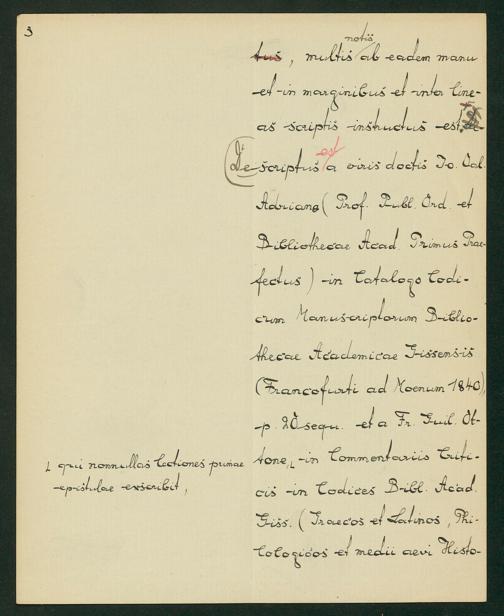 3
notis
tus, multis ab eadem manu
et in marginibus et inter line-
as scriptis instructus est,
De est
scriptus a viris doctis Io. Val.
Adriano (Prof. Publ. Ord. et
Bibliothecae Acad. Primus Prae-
fectus) in Catalogo Codi-
cum Manuscriptorum Biblio-
thecae Academicae Gissensis
(Francofurti ad Moenum 1840),
p. 20 sequ. et a Fr. Guil. Ot-
tone, in Commentariis Criti-
cis in Codices Bibl. Acad.
Giss. (Graecos et Latinos, Phi-
lologicos et medii aevi Histo-
qui nonnullas lectiones primae
epistulae exscribit,